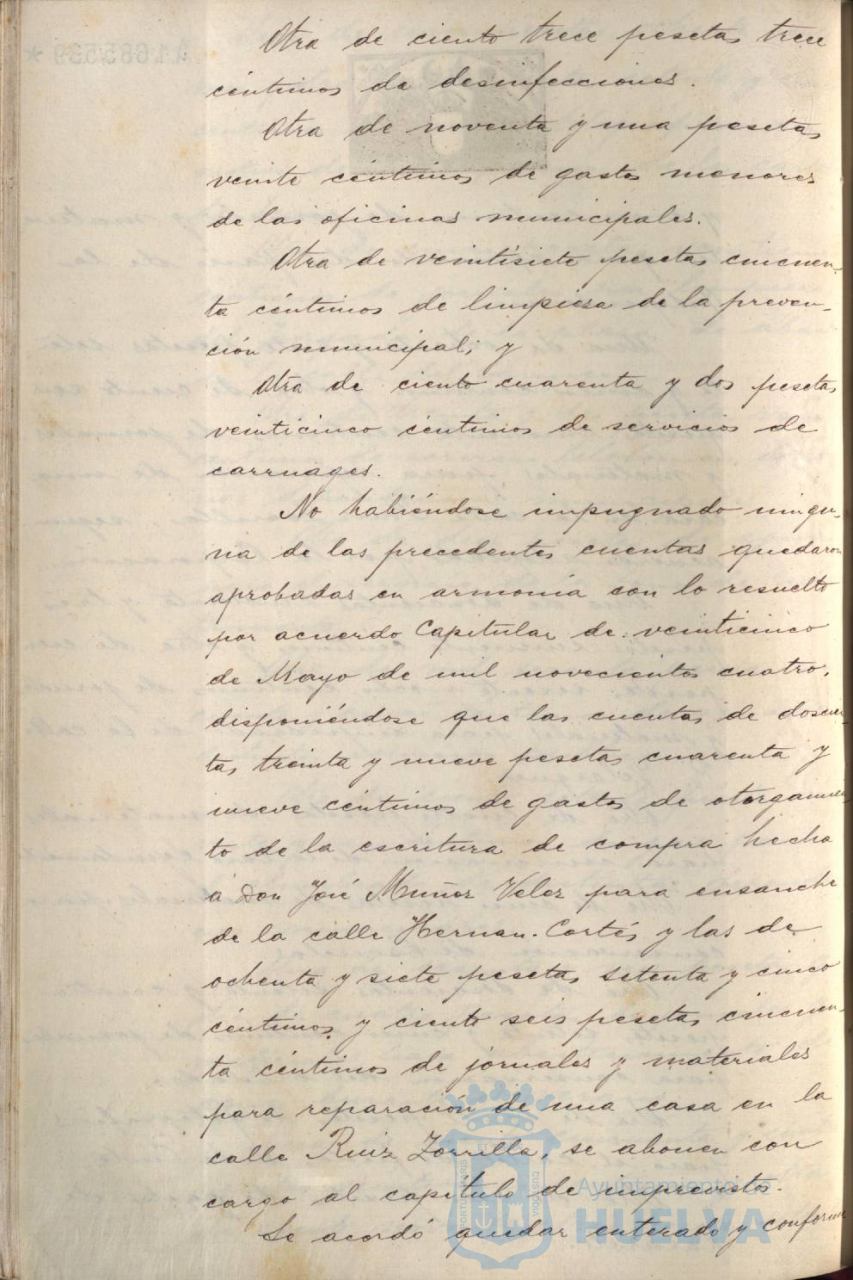 Otra de ciento trece pesetas trece
céntimos de desinfecciones.
Otra de noventa y una pesetas
veinte céntimos de gastos menores
de las oficinas municipales.
Otra de veintisiete pesetas cincuen-
ta céntimos de limpieza de la preven-
ción municipal; y
Otra de ciento cuarenta y dos pesetas
veinticinco céntimos de servicios de
carruages.
No habiéndose impugnado ningu-
na de las precedentes cuentas quedaron
aprobadas en armonía con lo resuelto
por acuerdo Capitular de veinticinco
de Mayo de mil novecientos cuatro,
disponiéndose que las cuentas de doscien-
tas treinta y nueve pesetas cuarenta y
nueve céntimos de gastos de otorgamien-
to de la escritura de compra hecha
á Don José Muñoz Velez para ensanche
de la calle Hernan-Cortés y las de
ochenta y siete pesetas setenta y cinco
céntimos y ciento seis pesetas cincuen-
ta céntimos de jornales y materiales
para reparación de una casa en la
calle Ruiz Zorrilla, se abonen con
cargo al capítulo de imprevistos.
Se acordó quedar enterado y conforme
Ayuntamiento de
HUELVA